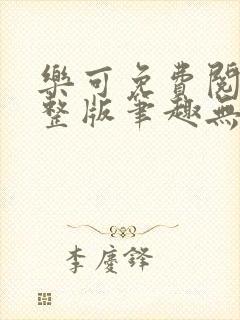 樂可免費閱
整版筆趣無
李慶鋒